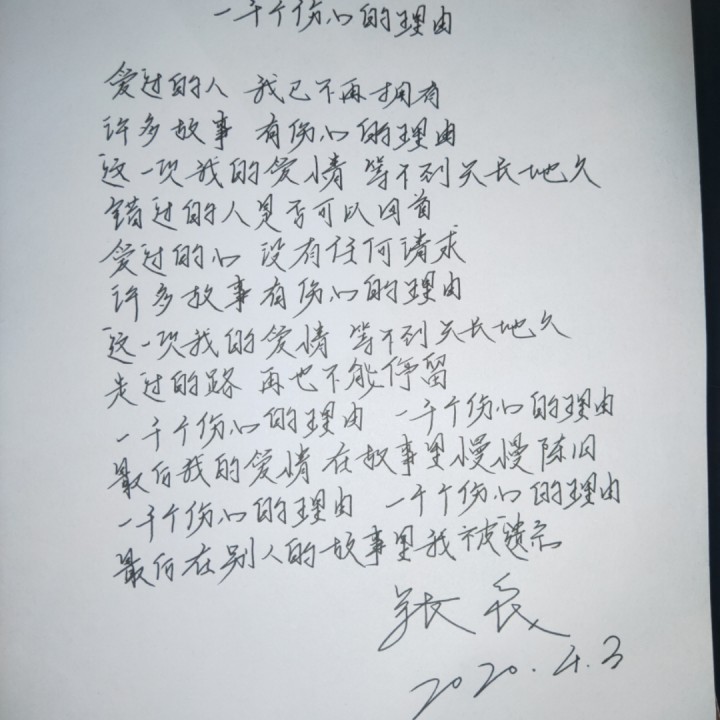 一千个伤心的理由
爱过的人 我已不再拥有
许多故事 有伤心的理由
这一次我的爱情 等不到天长地久
错过的人是否可以回首
爱过的心 没有任何请求
许多故事有伤心的理由
这一次我的爱情 等不到天长地久
走过的路 再也不能停留
一千个伤心的理由 一千个伤心的理由
最后我的爱情在故事里慢慢陈旧
一千个伤心的理由 一千个伤心的理由
最后在别人的故事里我被遗忘
张
2020.4.3